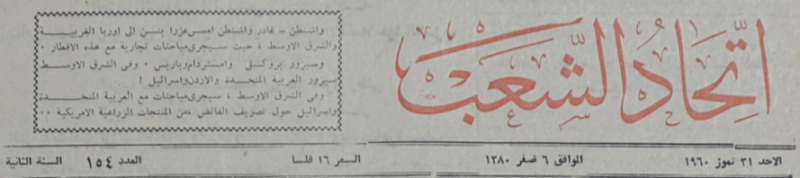 اتحاد الشعب
واشنطن - غادر واشنطن امس عزرا بنسن الى اوربا الغربيـــة
والشرق الاوسط ، حيث سيجرى مباحثات تجارية مع هذه الاقطار ٠
وسيزور بروكسل وامستردام وباريس ٠ وفى الشرق الاوسط
سيزور العربية المتحـــدة والاردن واسرائيل !
وفى الشرق الاوسط ، سيجرى مباحثات مع العربية المتحـــدة
واسرائيل حول تصريف الفائض من المنتجات الزراعية الامريكية ٠٠
الاحد ٣١ تموز ١٩٦٠ الموافق ٦ صفر ١٣٨٠ السعر ١٦ فلسا العدد ١٥٤ السنة الثانية